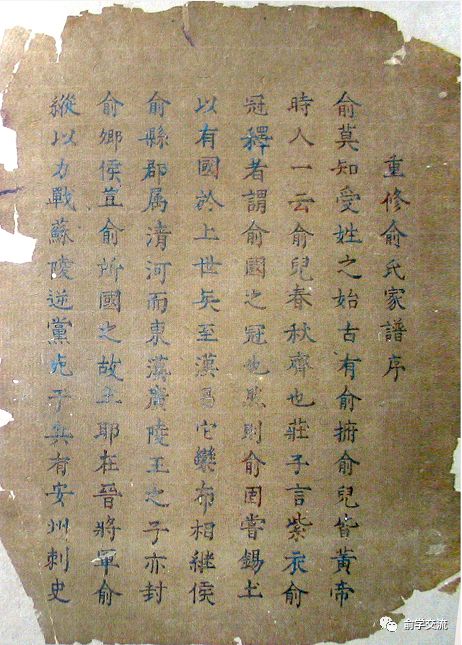 重修俞氏家譜序
俞莫知受姓之始古有俞拊俞兒皆黃帝
時人一云俞兒春秋齊也莊子言紫衣俞
冠釋者謂俞國之冠也然則俞固嘗錫土
以有國於上世矣至漢呂它欒布相継侯
俞縣郡属清河而東漢廣陵王之子亦封
俞鄉侯豈俞所國之故土耶在晉將軍俞
縱以力戰蘇陵逆黨死于兵有安州刺史
俞学交流